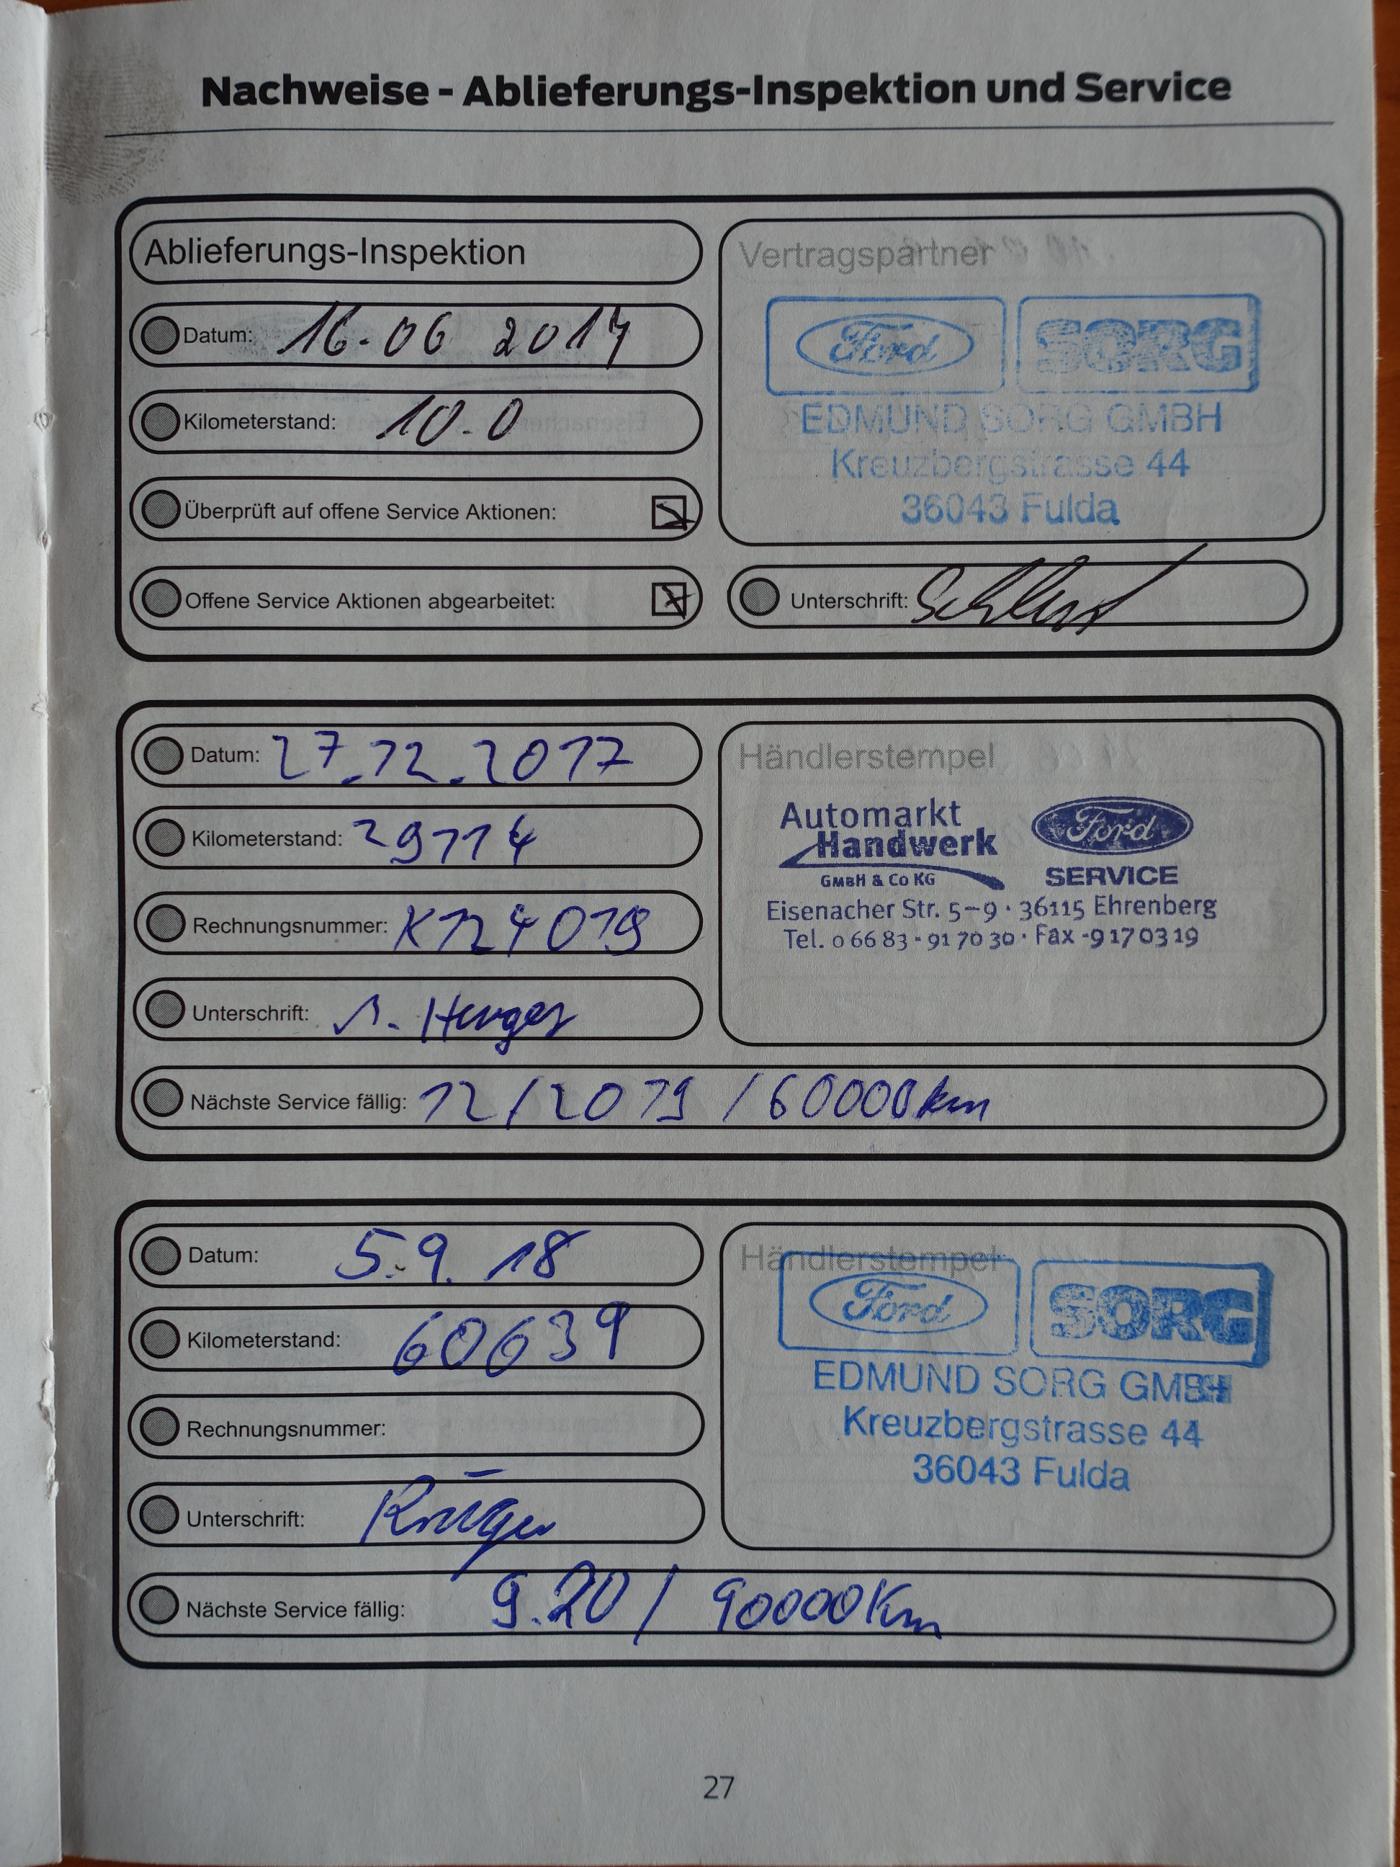 Nachweise - Ablieferungs-Inspektion und Service
Ablieferungs-Inspektion
Datum: 16.06 2017
Kilometerstand: 10.0
Überprüft auf offene Service Aktionen:
Offene Service Aktionen abgearbeitet:
Vertragspartner
Ford SORG
EDMUND SORG GMBH
Kreuzbergstrasse 44
36043 Fulda
Unterschrift:
Datum: 27.12.2017
Kilometerstand: 29114
Rechnungsnummer: K124019
Unterschrift:
Händlerstempel
Automarkt
Handwerk
GMBH & CO KG
Ford
SERVICE
Eisenacher Str. 5-9 · 36115 Ehrenberg
Tel. 0 66 83 - 91 70 30 · Fax -9 17 03 19
Nächste Service fällig: 12/2019 / 60000km
Datum: 5.9.18
Kilometerstand: 60639
Rechnungsnummer:
Unterschrift: Krüger
Händlerstempel
Ford SORG
EDMUND SORG GMBH
Kreuzbergstrasse 44
36043 Fulda
Nächste Service fällig: 9.20 / 90000Km
27